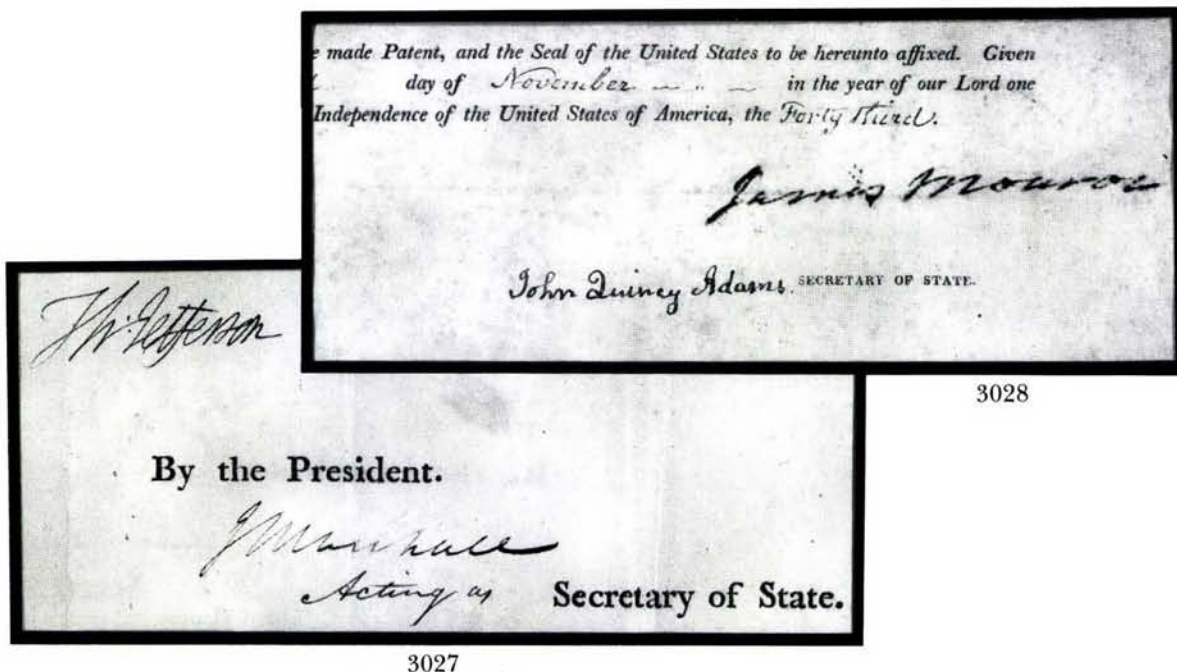 e made Patent, and the Seal of the United States to be hereunto affixed. Given
day of November in the year of our Lord one
Independence of the United States of America, the Forty third.
James Monroe
John Quincy Adams. SECRETARY OF STATE.
3028
Th: Jefferson
By the President.
J Marshall
Acting as Secretary of State.
3027